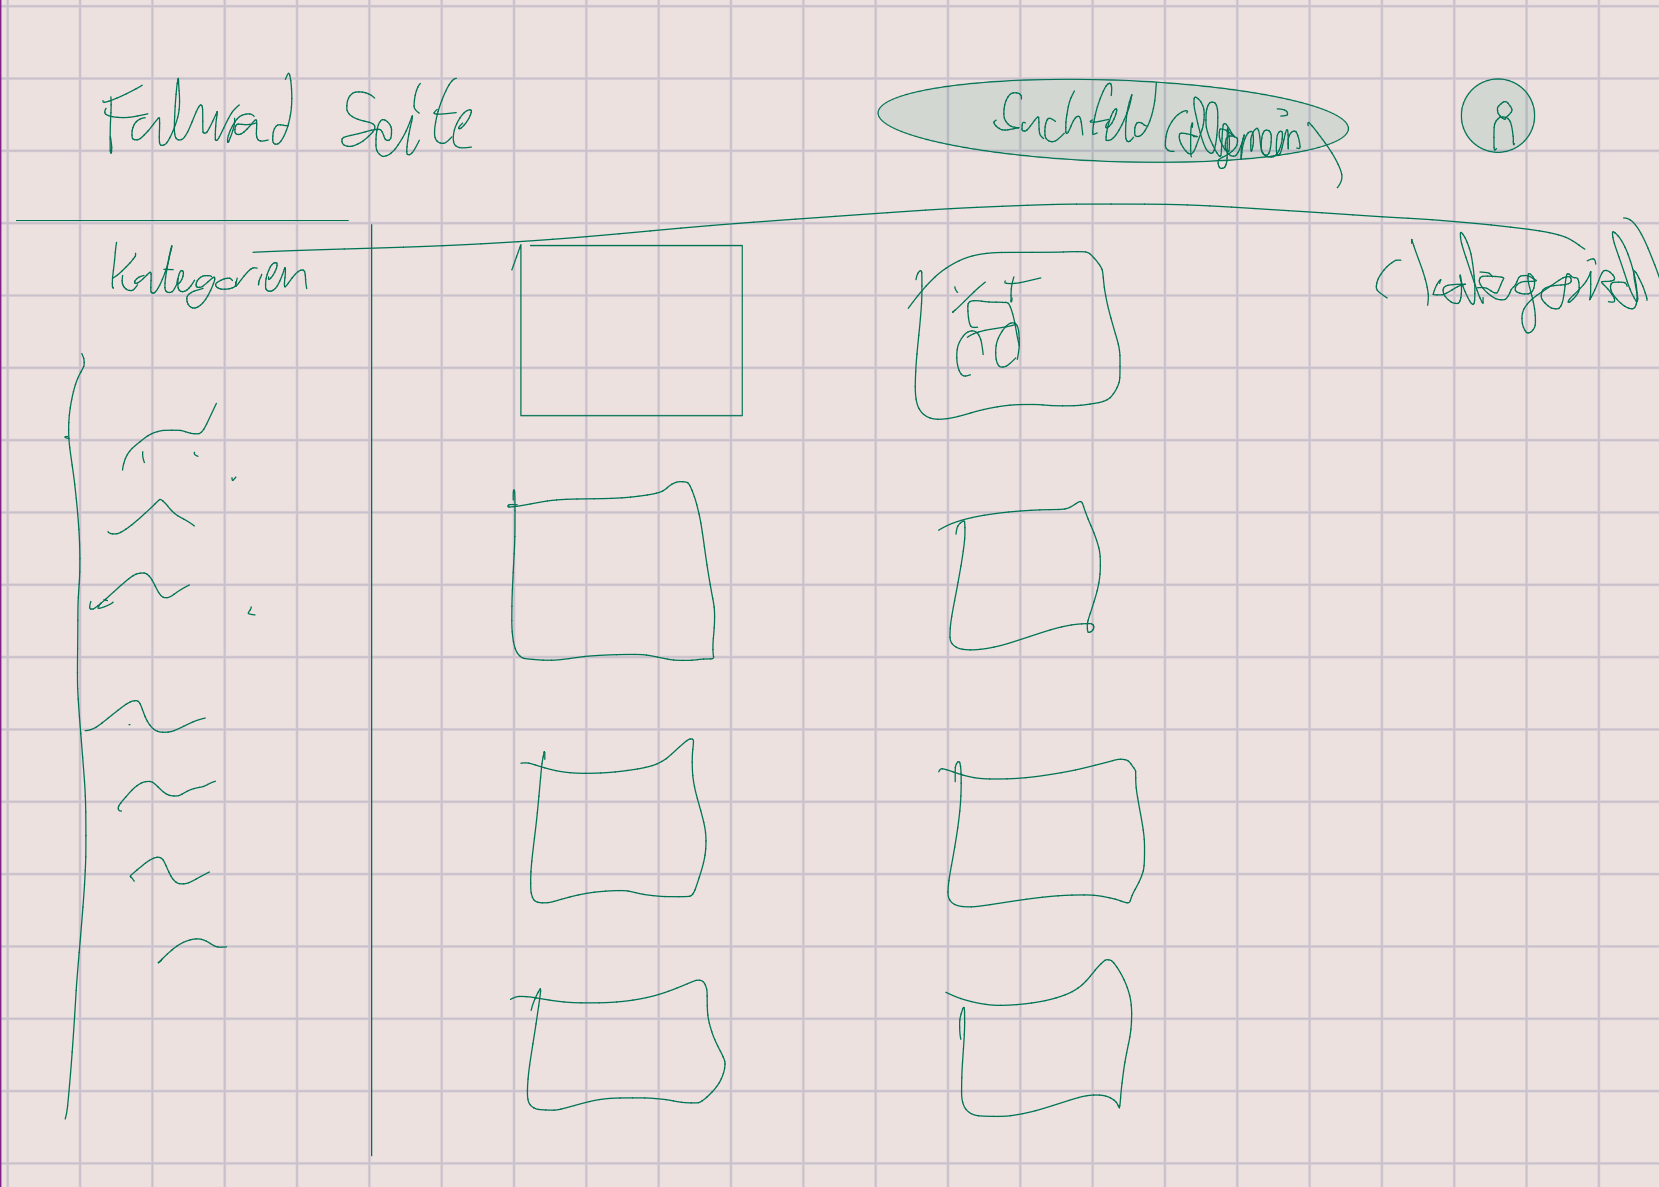 Fahrrad Seite
Suchfeld (allgemein)
Kategorien
(kategorisch)